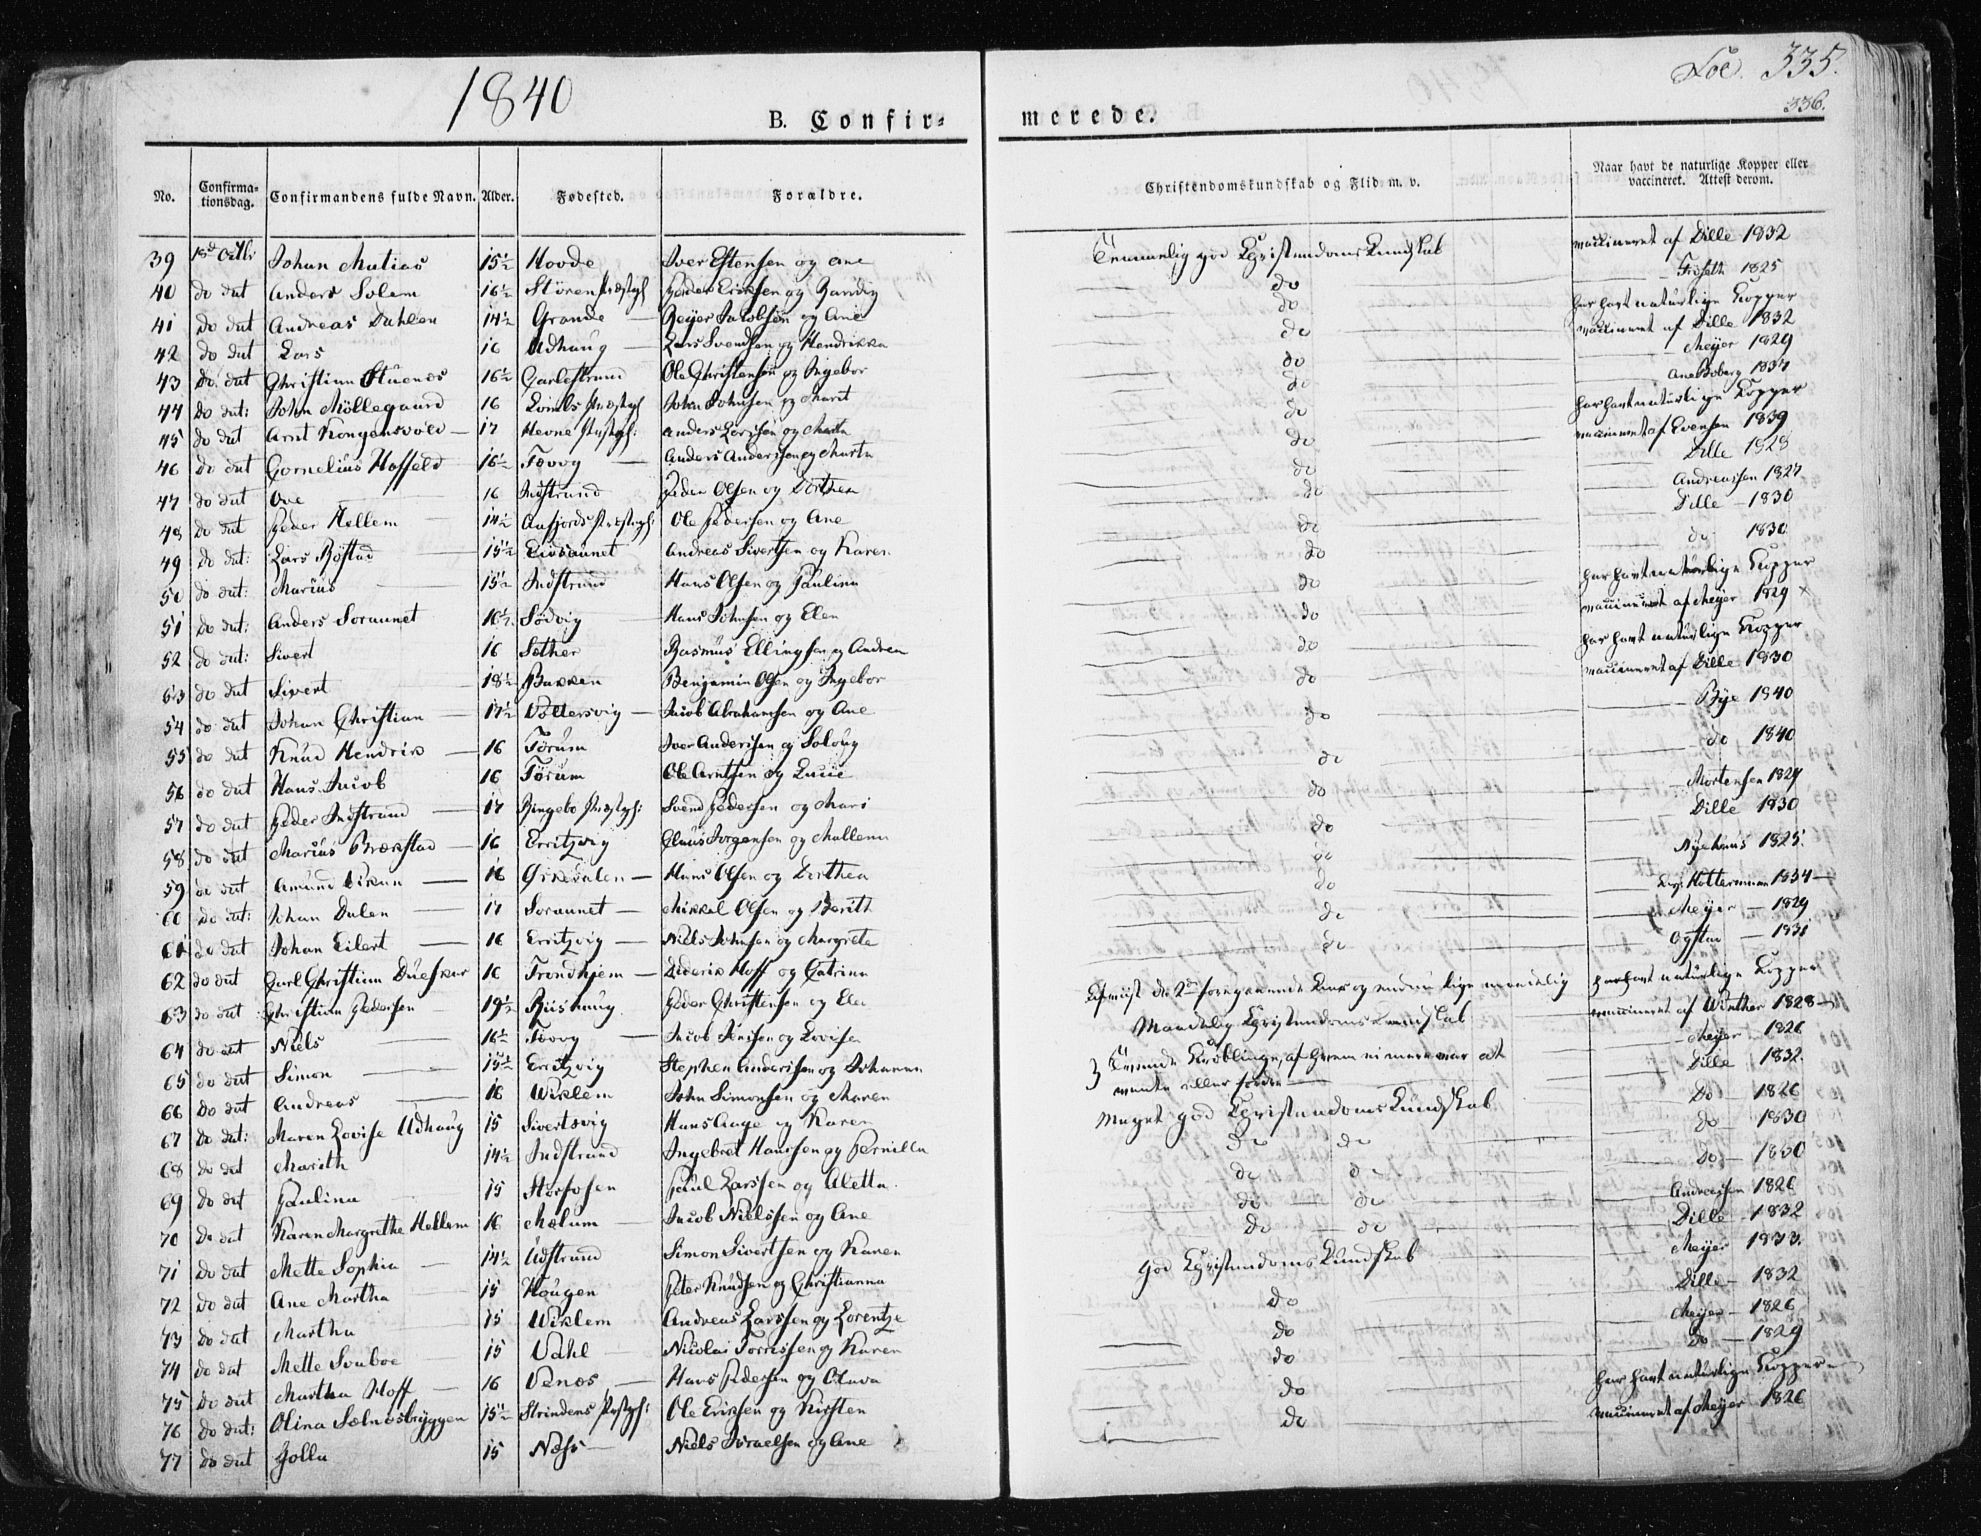 1840
Fol. 335.
336.
B. Confir-
merede.
No.
Confirma-
tionsdag.
Confirmandens fulde Navn.
Alder.
Fødested.
Forældre.
Christendomskundskab og Flid m. v.
Naar havt de naturlige Kopper eller
vaccineret. Attest derom.
39 18de Octbr Johan Matias 15½ Hovde Iver Estensen og Ane Temmelig god Christendoms Kundskab vaccineret af Dille 1832
40 do dut Anders Solem 16½ Støren Præstgl Peder Eriksen og do 1825
41 do dut Andreas Dahlen 14½ Grande Reyer Jacobsen og Ane do har havt naturlige Kopper
42 do dut Lars 16 Udhaug Lars Svendsen og Hendrikka do vaccineret af Dille 1832
43 do dut Christian Stuenes 16½ Garlestrand Ole Christensen og Ingebor do Meyer 1829
44 do dut: John Møllegaard 16 Præstgl John Johnsen og Marit do Ane Boberg 1834
45 do dut Arnt Kongensvold 17 Hevne Præstgl: Anders Larssen og Martha do har havt naturlige Kopper
46 do dut Cornelius Hoffeld 16½ Tovvg Anders Anderssen og Marta do vaccineret af Evensen 1839
47 do dut Ove 16 Indstrand Peder Olsen og Dorthea do Dille 1828
48 do dut Peder Hellem 14½ Aafjords Præstgl: Ole Pedersen og Ane do Andreassen 1827
49 do dut: Lars Røstad 15½ Eidsaunet Andreas Sivertsen og Karen do Dille 1830
50 do dut: Marius 15½ Indstrand Hans Olsen og Paulina do do 1830
51 do dut: Anders Soraunet 16½ Sødvig Hans Johnsen og Elen do har havt naturlige Kopper
52 do dut: Sivert 16 Sother Rasmus Ellingsen og Andrea do vaccineret af Meyer 1829 ×
53 do dut Sivert 18½ Bakken Benjamin Olsen og Ingebor do har havt naturlige Kopper
54 do dut Johan Christian 17½ Vottersvig Jacob Abrahamsen og Ane do vaccineret af Dille 1830
55 do dut Knud Hendrik 16 Torum Iver Anderssen og Solvug do Bye 1840
56 do dut Hans Jacob 16 Torum Ole Arntsen og Lucie do do 1840
57 do dut Peder Indstrand 17 Ringebo Præstgl: Svend Pedersen og Mari do Mortensen 1829
58 do dut Marius Brækstad 16 Erritzvig Claus Jørgensen og Mallena do Dille 1830
59 do dut Amund 16 Hans Olsen og Dorthea do 1825.
60 do dut: Johan Dalen 17 Soraunet Mikkel Olsen og Berith do 1834
61 do dut Johan Eilert 16 Erritzvig Niels Johnsen og Margrete do Meyer 1829
62 do dut Carl Christian 16 Trondhjem Diderik Hoff og Catrina do 1831
63 do dut Christian Pedersen 19½ Riishaug Peder Christensen og Elen har havt naturlige Kopper
64 do dut Niels 16½ Tovvg Jacob og Lovisa Maadelig Christendoms Kundskab vaccineret af Winther 1828
65 do dut Simon 15½ Erritzvig Stephen Anderssen og Johanna Meyer 1826
66 do dut Andreas 16 Wiklem John Simonsen og Maren Dille 1832
67 do dut: Maren Lovise Udhaug 15 Sivertsvig Hans Aage og Karen Meget god Christendoms Kundskab do 1826
68 do dut Marith 14½ Indstrand Ingebret Hanssen og Pernilla do do do 1830
69 do dut Paulina 15 Storfosen Paul Larssen og Aletta do do do 1830
70 do dut Karen Margrethe Hellem 16 Mælum Jacob Nielssen og Ane do do Andreassen 1826
71 do dut Mette Sophia 14½ Udstrand Simon Sivertsen og Karen do do Dille 1832
72 do dut Ane Martha 15 Hougen Peter Knudsen og Christianna god Christendoms Kundskab Meyer 1833
73 do dut Martha 15 Wiklem Andreas Larssen og Lorentze do Dille 1832
74 do dut Mette Svaboe 15 Vahl Nicolai Torrissen og Karen do Meyer 1826
75 do dut Martha Hoff 16 Vænes Hans Pedersen og Oluva do do 1829
76 do dut: Olina Sælnesbryggen 15½ Strindens Præstgl: Ole Eriksen og Kirsten do har havt naturlige Kopper
77 do dut Jolla 15 Næss Niels Israelsen og Ane do vaccineret af Meyer 1826